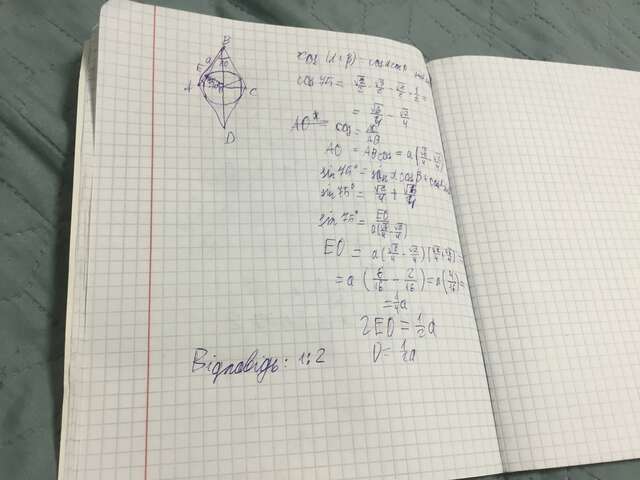 B
a
30
E
A
C
D
cos 75 = √2/2 · √3/2 - √2/2 · 1/2 =
= √6/4 - √2/4
AO = x
cos = x/AB
AO = AB cos = a(√6/4 - √2/4)
sin 75° = sin α cos β + cos
sin 75° = √2/4 + √6/4
sin 75° = EO/a(√6/4 - √2/4)
EO = a(√6/4 - √2/4)(√6/4 + √2/4) =
= a(6/16 - 2/16) = a(4/16) =
= 1/4 a
2EO = 1/2 a
D = 1/2 a
Відповідь: 1:2